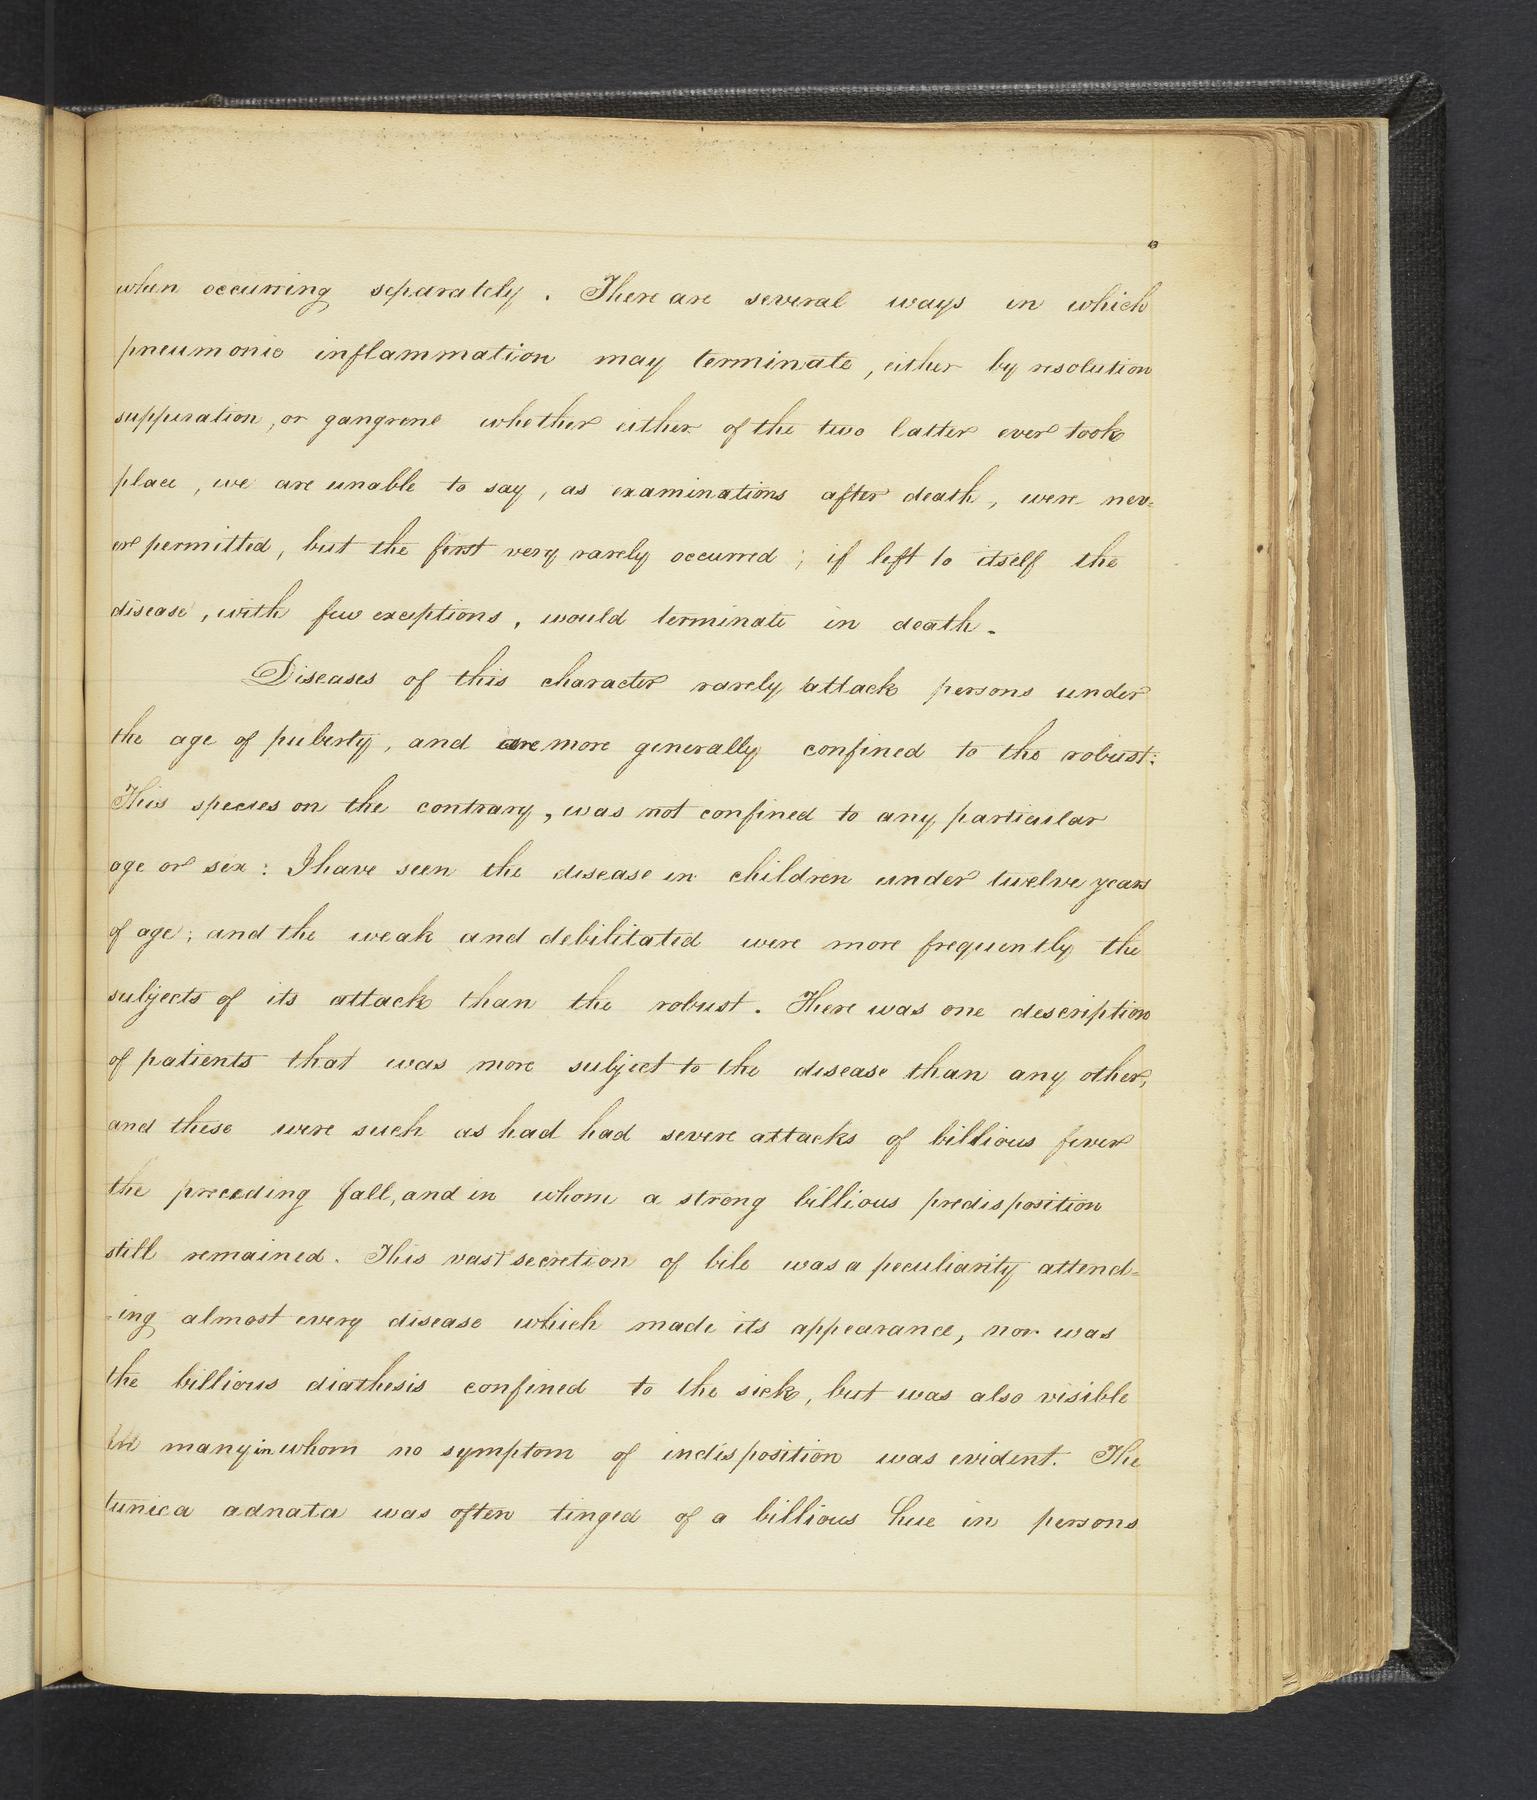 when occurring separately. There are several ways in which
pneumonic inflammation may terminate, either by resolution
suppuration, or gangrene whether either of the two latter ever took
place, we are unable to say, as examinations after death, were nev=
er permitted, but the first very rarely occurred; if left to itself the
disease, with few exceptions, would terminate in death.
Diseases of this character rarely attack persons under
the age of puberty, and are more generally confined to the robust:
This species on the contrary, was not confined to any particular
age or sex: I have seen the disease in children under twelve years
of age; and the weak and debilitated were more frequently the
subjects of its attack than the robust. There was one description
of patients that was more subject to the disease than any other,
and these were such as had had severe attacks of billious fever
the preceding fall, and in whom a strong billious predisposition
still remained. This vast secretion of bile was a peculiarity attend=
-ing almost every disease which made its appearance, nor was
the billious diathesis confined to the sick, but was also visible
in many in whom no symptom of indisposition was evident. The
tunica adnata was often tinged of a billious hue in persons